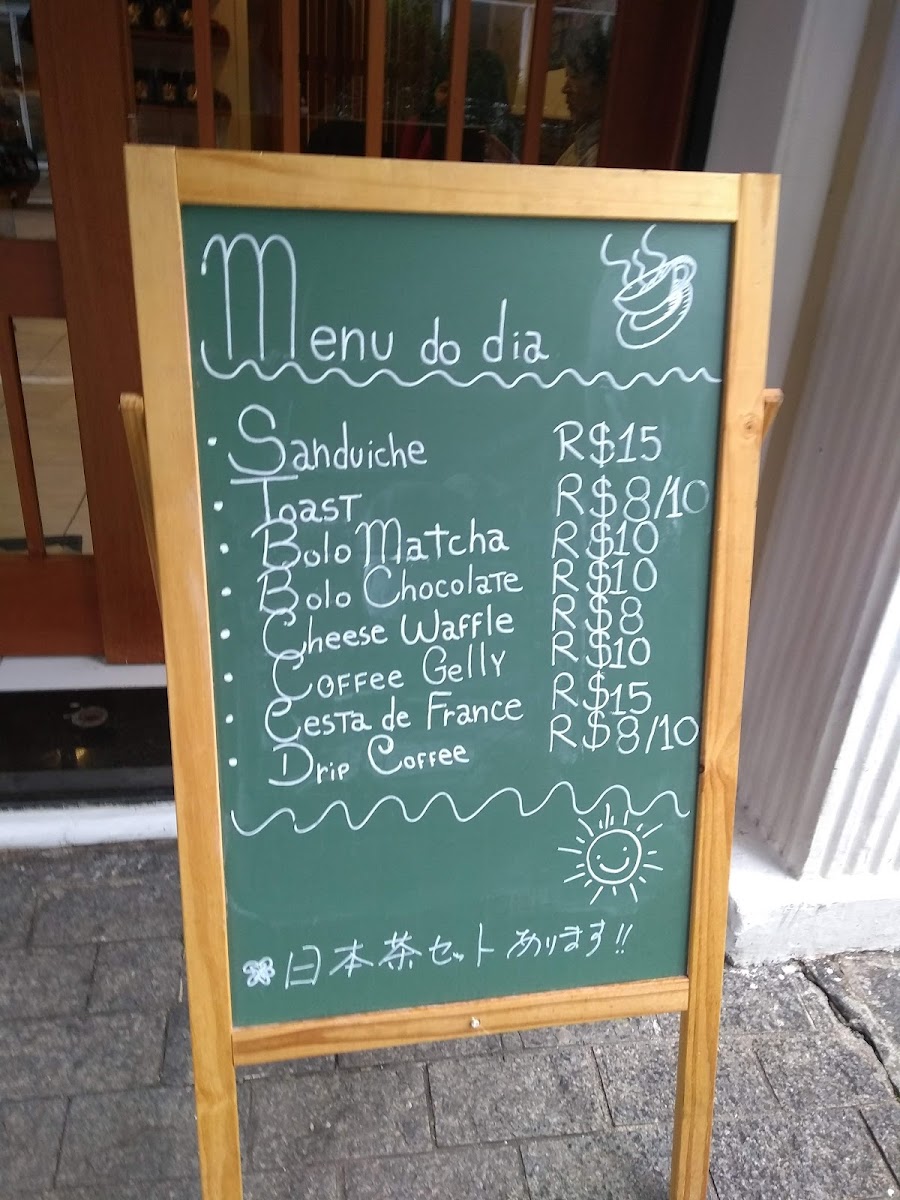 Menu do dia
· Sanduiche R$15
· Toast R$8/10
· Bolo Matcha R$10
· Bolo Chocolate R$10
· Cheese Waffle R$8
· Coffee Gelly R$10
· Cesta de France R$15
· Drip Coffee R$8/10
日本茶セットあります!!